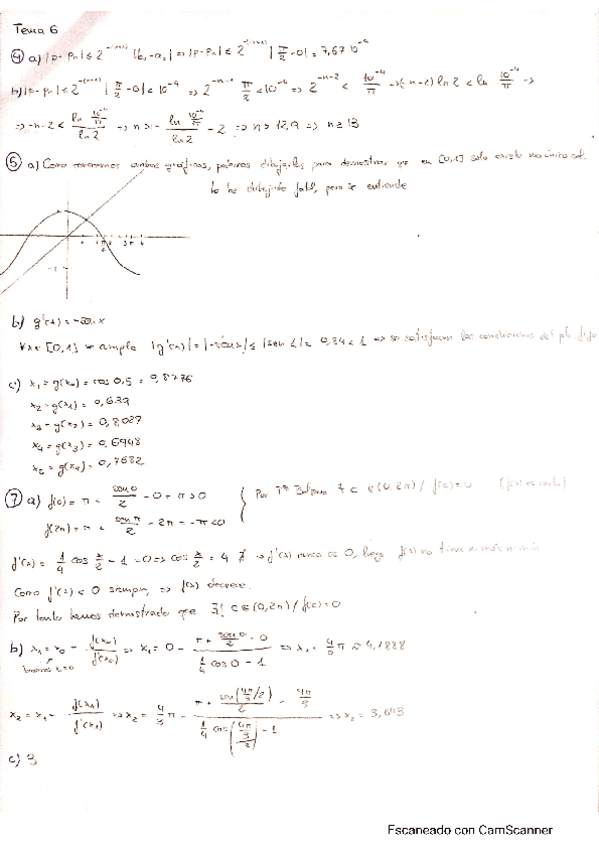 Tema 6
④ a) |p - pₙ| ≤ 2^-(n+1) |b₀ - a₀| ⇒ |p - pₙ| ≤ 2^-(n+1) |π/2 - 0| = 7,67 10^-4
b) |p - pₙ| ≤ 2^-(n+1) |π/2 - 0| < 10^-4 ⇒ 2^-n-1 π/2 < 10^-4 ⇒ 2^-n-2 < 10^-4/π ⇒ (-n-2) ln 2 < ln 10^-4/π ⇒
⇒ -n-2 < ln 10^-4/π / ln 2 ⇒ n > - ln 10^-4/π / ln 2 - 2 ⇒ n > 12,9 ⇒ n ≥ 13
⑤ a) Como conocemos ambas gráficas, podemos dibujarlas para demostrar que en [0,1] solo existe una única sol.
lo he dibujado fatal, pero se entiende.
b) g'(x) = -sen x
∀x∈ [0,1] se cumple |g'(x)| = |-sen x| ≤ |sen 1| = 0,84 < 1 ⇒ se satisfacen las condiciones del pto. fijo
c) x₁ = g(x₀) = cos 0,5 = 0,8776
x₂ = g(x₁) = 0,639
x₃ = g(x₂) = 0,8027
x₄ = g(x₃) = 0,6948
x₅ = g(x₄) = 0,7682
⑦ a) f(0) = π + sen 0/2 - 0 = π > 0 { Por Tª Bolzano ∃ c ∈ (0,2π) / f(c) = 0
f(2π) = π + sen π/2 - 2π = -π < 0
f'(x) = 1/4 cos x/2 - 1 = 0 ⇒ cos x/2 = 4 ∄ ⇒ f'(x) nunca es 0, luego f(x) no tiene
Como f'(x) < 0 siempre, ⇒ f(x) decrece.
Por tanto hemos demostrado que ∃! c ∈ (0,2π) / f(c) = 0
b) x₁ = x₀ - f(x₀)/f'(x₀) ⇒ x₁ = 0 - (π + sen 0/2 - 0)/(1/4 cos 0 - 1) ⇒ x₁ = 4/3 π ≈ 4,1888
tomamos x₀=0
x₂ = x₁ - f(x₁)/f'(x₁) ⇒ x₂ = 4/3 π - (π + sen(4π/3/2)/2 - 4π/3)/(1/4 cos(4π/3/2) - 1) ⇒ x₂ = 3,643
c) 3
Escaneado con CamScanner